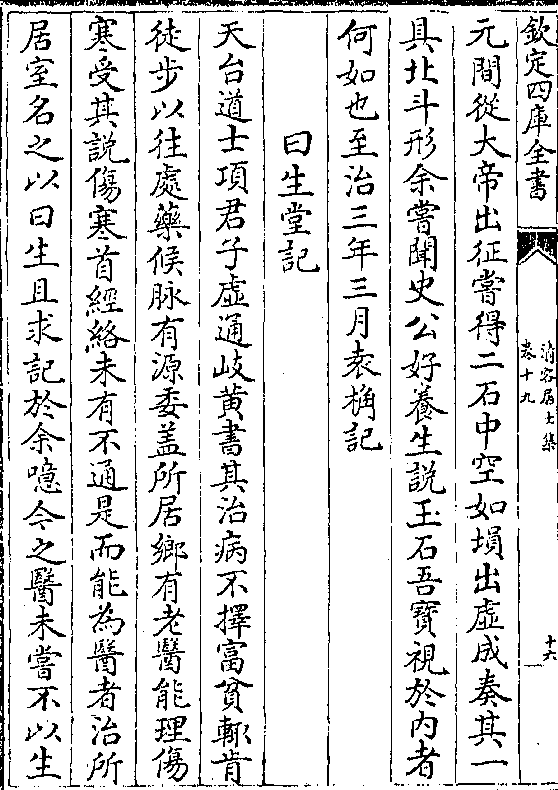 欽定四庫全書
清容居士集
卷十九
十六
元間從大帝出征嘗得二石中空如塤出虛成奏其一
具北斗形余嘗聞史公好養生說玉石吾寳視於内者
何如也至治三年三月袁桷記
曰生堂記
天台道士項君子虛通岐黄書其治病不擇富貧輙肯
徒步以往處藥候脉有源委盖所居鄉有老醫能理傷
寒受其說傷寒首經絡未有不通是而能為醫者治所
居室名之以曰生且求記於余噫今之醫未嘗不以生